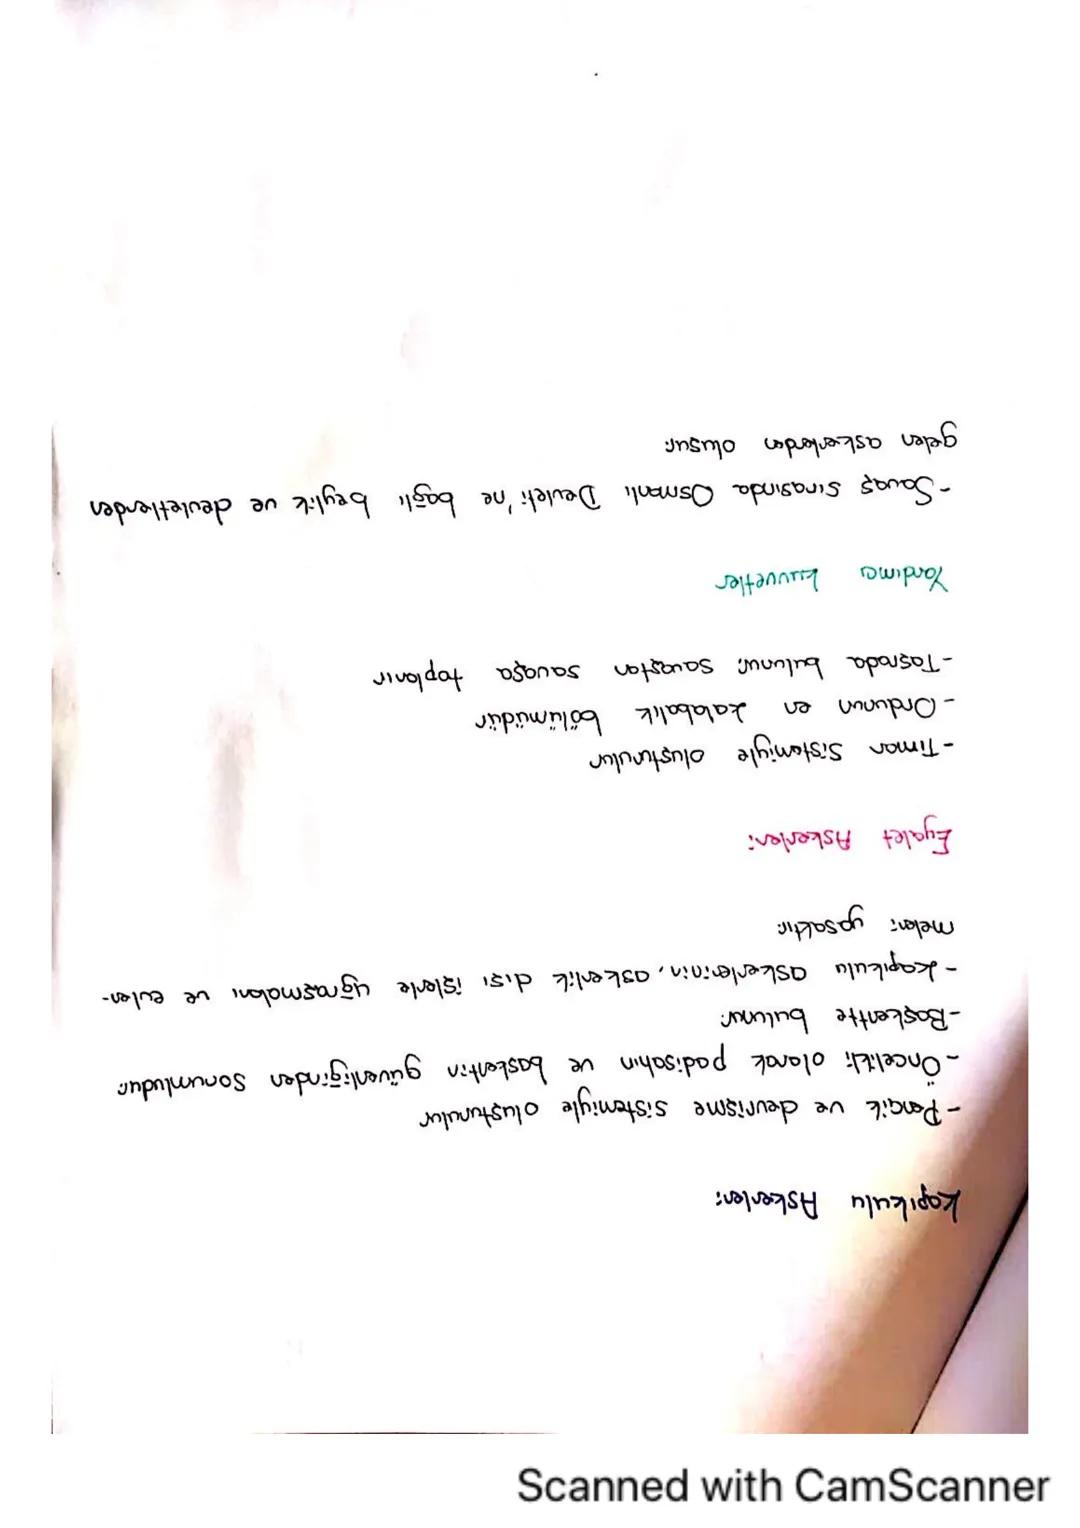 Kapıkulu Askerleri:
- Pençik ve devşirme sistemiyle oluşturulur
- Öncelikli olarak padişahın ve başkentin güvenliğinden sorumludur.
- Başkentte bulunur.
- Kapıkulu askerlerinin, askerlik dışı işlerle uğraşmaları ve evlen-
meleri yasaktır.
Eyalet Askerleri:
- Tımar sistemiyle oluşturulur
- Ordunun en kalabalık bölümüdür
- Taşrada bulunur; savaştan savaşa toplanır
Yardımcı kuvvetler
- Savaş sırasında Osmanlı Devleti'ne bağlı beylik ve devletlerden
gelen askerlerden oluşur.
Scanned with CamScanner